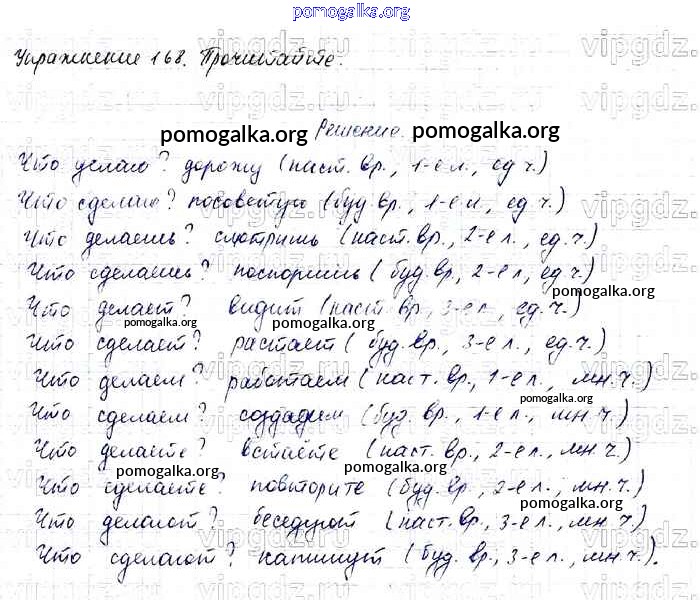 pomogalka.org
Упражнение 168. Прочитайте.
pomogalka.org Решение. pomogalka.org
Что делаю? дорожу (наст. вр., 1-е л., ед ч.)
Что сделаю? посоветую (буд вр., 1-е л., ед ч.)
Что делаешь? смотришь (наст. вр., 2-е л., ед. ч.)
Что сделаешь? поспоришь (буд. вр, 2-е л, ед. ч.)
pomogalka.org
Что делает? видит (наст. вр, 3-е л., ед. ч.)
pomogalka.org pomogalka.org
Что сделает? растает (буд. вр., 3-е л., ед. ч.)
Что делаем? работаем (наст. вр., 1-е л., мн. ч.)
pomogalka.org
Что сделаем? создадим (буд. вр., 1-е л., мн ч.)
Что делаете? встаёте (наст. вр., 2-е л., мн. ч.)
pomogalka.org pomogalka.org
Что сделаете? повторите (буд. вр, 2-е л., мн. ч.)
Что делают? беседуют (наст. вр., 3-е л., мн. ч.)
pomogalka.org
Что сделают? напишут (буд. вр., 3-е л., мн. ч.).
pomogalka.org